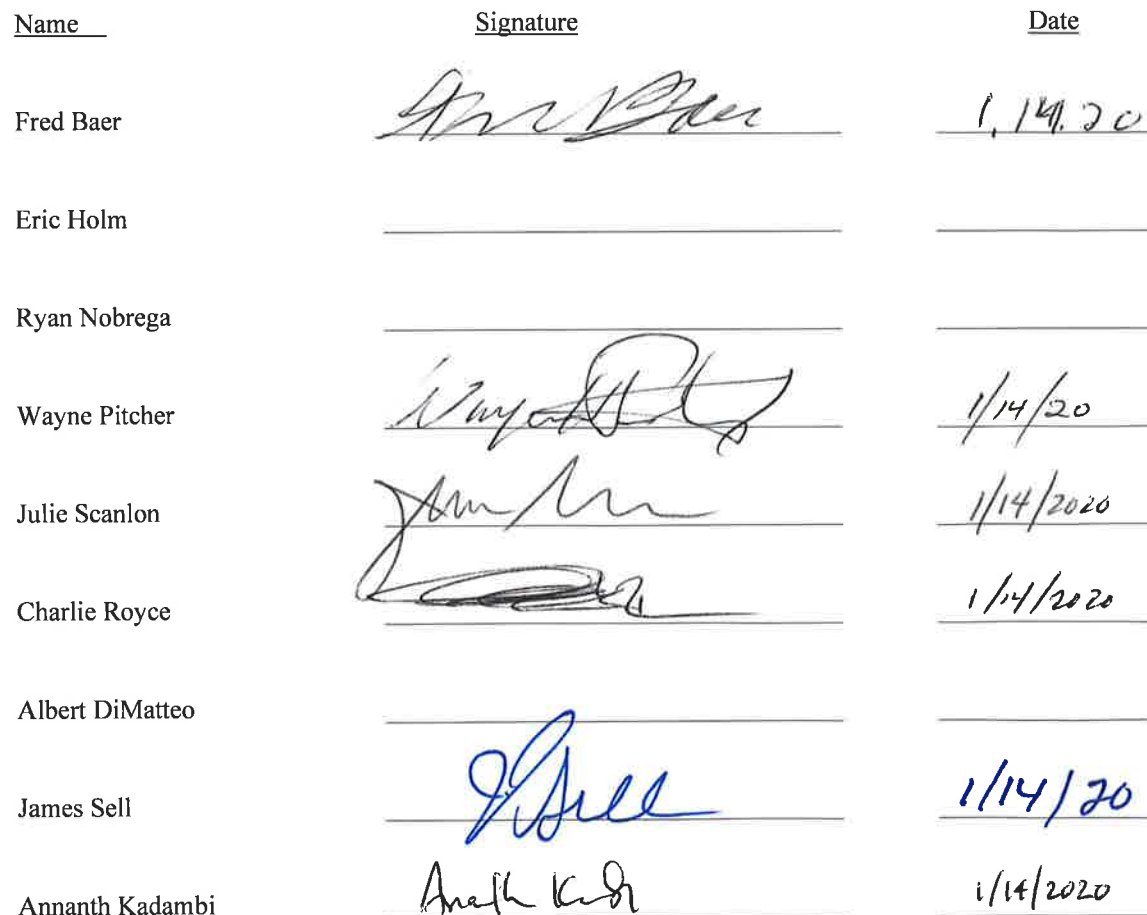 Name Signature Date
Fred Baer Baer 1.14.20
Eric Holm
Ryan Nobrega
Wayne Pitcher Wayne 1/14/20
Julie Scanlon 1/14/2020
Charlie Royce 1/14/2020
Albert DiMatteo
James Sell J Sell 1/14/20
Annanth Kadambi 1/14/2020